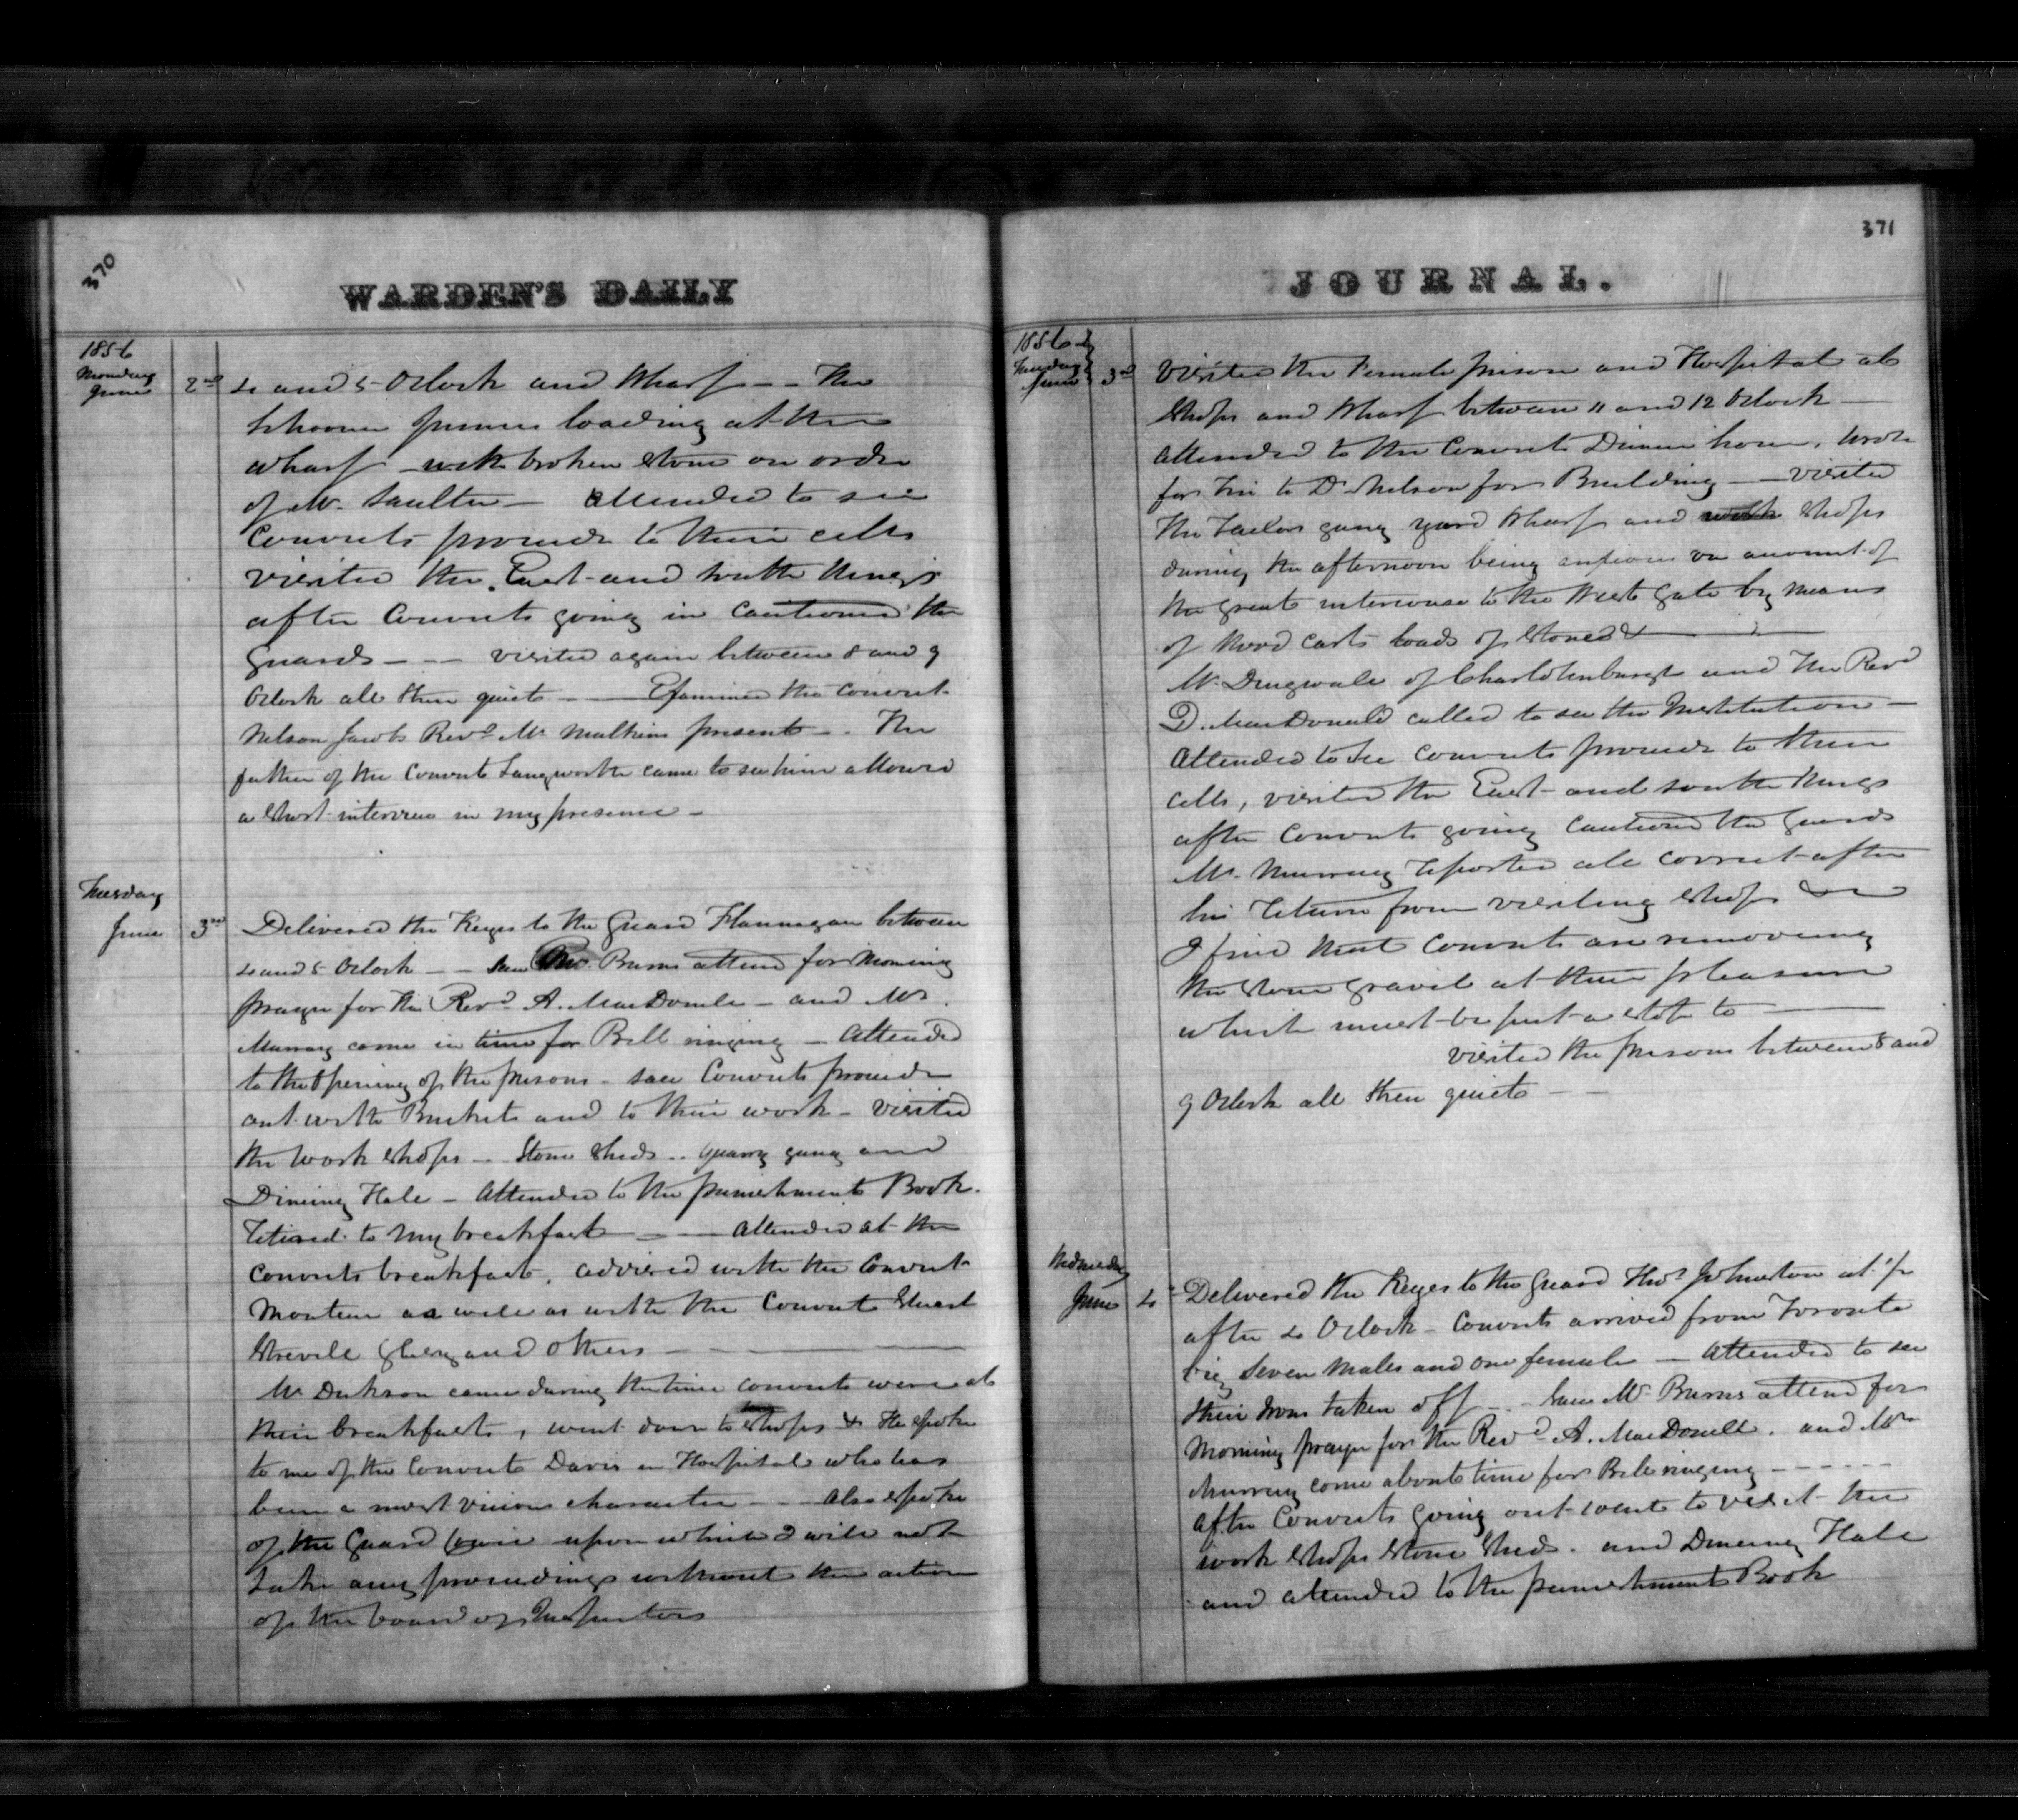 370
WARDEN'S DAILY
1856
Monday
June 2nd
4 and 5 Oclock and Wharf -- The
Schooner loading at the
wharf with broken stone on order
of Mr. Saulter - attended to see
Convicts proceed to their cells
visited the East and South Wings
after Convicts going in Cautioned the
Guards --- visited again between 8 and 9
Oclock all then quiet -- Examined the Convict
Nelson Jacobs Revd Mr Mulkins present -. The
father of the Convict Langworth came to see him allowed
a short interview in my presence -
Tuesday
June 3rd
Delivered the Keyes to the Guard Flannagan between
4 and 5 Oclock -- Saw Mr. Burns attend for Morning
prayer for the Revd A. MacDonell - and Mr.
Murray come in time for Bell ringing - Attended
to the Opening of the prisons - saw Convicts proceed
out with Buckets and to their work - visited
the work shops - Stone Sheds .. quarry gang and
Dining Hall - Attended to the punishment Book.
retired to my breakfast --- attended at the
Convicts breakfast, advised with the Convict
as well as with the Convict Stuart
and others ---
Mr Dickson came during the time Convicts were at
their breakfasts, went down to shops & He spoke
to me of the Convict Davis in Hospital who has
been a most vicious character --- Also spoke
of the Guard upon which I will not
take any proceedings without the action
of the board of Inspectors
JOURNAL.
371
1856
Tuesday
June 3rd
Visited the Female prison and Hospital at
Shops and Wharf between 11 and 12 Oclock -
Attended to the Convicts Dinner hour, wrote
for to Dr Nelson for Building -- visited
the Tailors gang yard Wharf and Shops
during the afternoon being anxious on account of
the great intercourse to the West Gate by means
of Wood Carts loads of Stones & ---
Mr Dingwall of Charlottenburgh and the Revd
D. MacDonald called to see the Institution -
Attended to see Convicts proceed to their
cells, visited the East and South Wings
after Convicts going Cautioned the Guards
Mr. Murray reported all correct after
his return from visiting Shops &c
I find that Convicts are removing
the Stone gravel at their pleasure
which must be put a stop to ---
visited the prisons between 8 and
9 Oclock all then quiet --
Wednesday
June 4th
Delivered the Keyes to the Guard Thos Johnston at ½
after 4 Oclock - Convicts arrived from Toronto
viz Seven Males and one female - Attended to see
their Irons taken off -- Saw Mr Burns attend for
Morning prayer for the Revd A. MacDonell. and Mr
Murray come about time for Bell ringing ------
After Convicts going out went to visit the
work shops Stone Sheds. and Dining Hall
and attended to the punishment Book